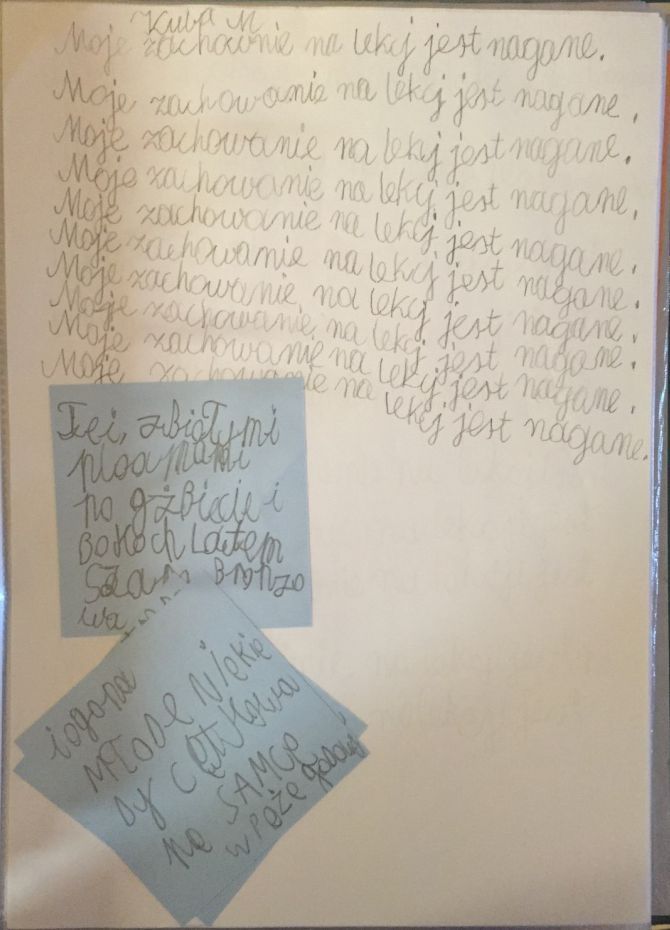 Kuba M
Moje zachownie na lekcj jest nagane.
Moje zachowanie na lekcj jest nagane.
Moje zachowanie na lekcj jest nagane.
Moje zachowanie na lekcj jest nagane.
Moje zachowanie na lekcj jest nagane.
Moje zachowanie na lekcj jest nagane.
Moje zachowanie na lekcj jest nagane.
Moje zachowanie na lekcj jest nagane.
Moje zachowanie na lekcj jest nagane.
Moje zachowanie na lekcj jest nagane.
z białymi
plamami
po gżbiecie i
Bokoch Latem
Bronzo
wa
iogona
młode niekie
dy cętkowa
ne SAMCe
w Poże godowej